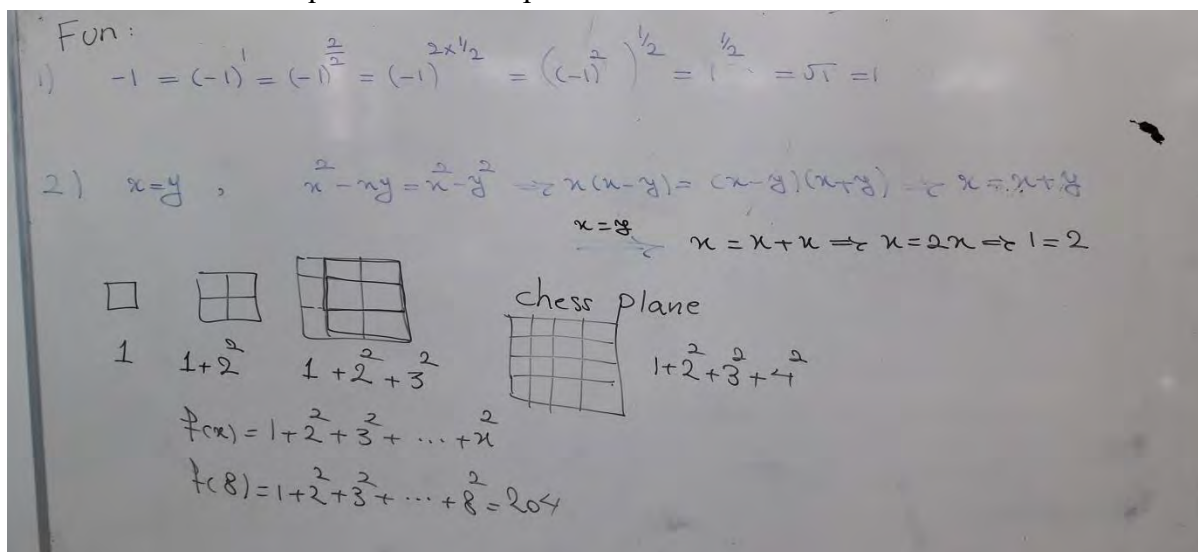 Fun:
1) -1 = (-1)^1 = (-1)^{2/2} = (-1)^{2×1/2} = ((-1)^2)^{1/2} = 1^{1/2} = √1 = 1
2) x=y , x^2-xy = x^2-y^2 ⇒ x(x-y) = (x-y)(x+y) ⇒ x = x+y
x=y ⇒ x = x+x ⇒ x=2x ⇒ 1=2
chess plane
1 1+2^2 1+2^2+3^2 1+2^2+3^2+4^2
f(x) = 1+2^2+3^2+...+x^2
f(8) = 1+2^2+3^2+...+8^2 = 204